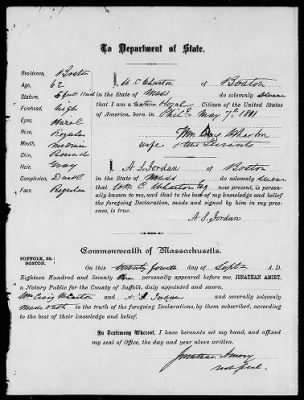 To Department of State.
Residence, Boston
Age, 62
Stature, 5 feet
Forehead, High
Eyes, Hazel
Nose, Regular
Mouth, Medium
Chin, Round
Hair, Gray
Complexion, Dark
Face, Regular
W C Wharton of Boston
in the State of Mass do solemnly swear
that I am a Loyal Citizen of the United States
of America, born in Phil. May 7th
Wm Craig Wharton
wife
I A. S. Jordan of Boston
in the State of Mass do solemnly swear
that C Wharton Esq now present, is personally
known to me, and that to the best of my knowledge and belief
the foregoing Declaration, made and signed by him in my presence,
is true.
A. S. Jordan
Commonwealth of Massachusetts.
SUFFOLK, SS:
BOSTON.
On this Twenty fourth day of Sept. A. D.
Eighteen Hundred and Seventy personally appeared before me, JONATHAN AMORY,
a Notary Public for the County of Suffolk, duly appointed and sworn,
Wm Craig Wharton and A. S. Jordan and solemnly
made oath to the truth of the foregoing Declarations, by them subscribed, according
to the best of their knowledge and belief.
In Testimony Whereof, I have hereunto set my hand, and affixed
my seal of Office, the day and year above written.
Jonathan Amory
Not. Pub.